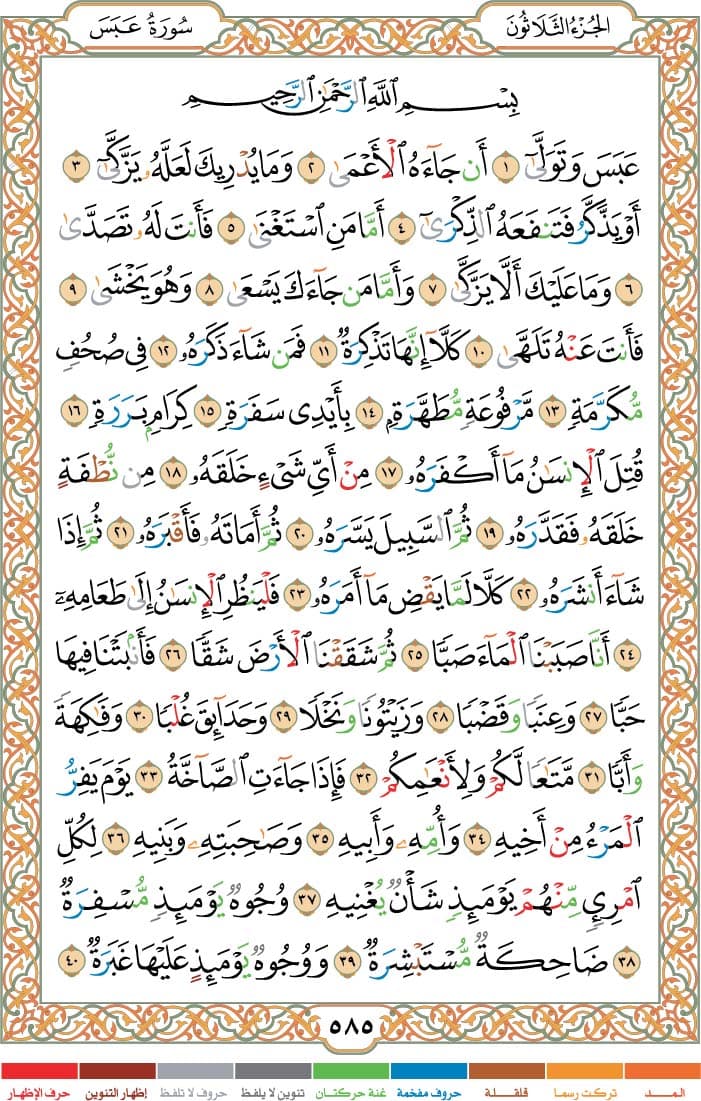 الجُزْءُ الثَّلَاثُونَ
سُورَةُ عَبَسَ
بِسْمِ اللَّهِ الرَّحْمَٰنِ الرَّحِيمِ
عَبَسَ وَتَوَلَّىٰٓ ١ أَن جَآءَهُ الْأَعْمَىٰ ٢ وَمَا يُدْرِيكَ لَعَلَّهُۥ يَزَّكَّىٰٓ ٣
أَوْ يَذَّكَّرُ فَتَنفَعَهُ الذِّكْرَىٰٓ ٤ أَمَّا مَنِ اسْتَغْنَىٰ ٥ فَأَنتَ لَهُۥ تَصَدَّىٰ
٦ وَمَا عَلَيْكَ أَلَّا يَزَّكَّىٰ ٧ وَأَمَّا مَن جَآءَكَ يَسْعَىٰ ٨ وَهُوَ يَخْشَىٰ ٩
فَأَنتَ عَنْهُ تَلَهَّىٰ ١٠ كَلَّآ إِنَّهَا تَذْكِرَةٌ ١١ فَمَن شَآءَ ذَكَرَهُۥ ١٢ فِى صُحُفٍ
مُّكَرَّمَةٍ ١٣ مَّرْفُوعَةٍ مُّطَهَّرَةٍۭ ١٤ بِأَيْدِى سَفَرَةٍ ١٥ كِرَامٍۭ بَرَرَةٍ ١٦
قُتِلَ الْإِنسَٰنُ مَآ أَكْفَرَهُۥ ١٧ مِنْ أَىِّ شَىْءٍ خَلَقَهُۥ ١٨ مِن نُّطْفَةٍ
خَلَقَهُۥ فَقَدَّرَهُۥ ١٩ ثُمَّ السَّبِيلَ يَسَّرَهُۥ ٢٠ ثُمَّ أَمَاتَهُۥ فَأَقْبَرَهُۥ ٢١ ثُمَّ إِذَا
شَآءَ أَنشَرَهُۥ ٢٢ كَلَّا لَمَّا يَقْضِ مَآ أَمَرَهُۥ ٢٣ فَلْيَنظُرِ الْإِنسَٰنُ إِلَىٰ طَعَامِهِۦٓ
٢٤ أَنَّا صَبَبْنَا الْمَآءَ صَبًّا ٢٥ ثُمَّ شَقَقْنَا الْأَرْضَ شَقًّا ٢٦ فَأَنۢبَتْنَا فِيهَا
حَبًّا ٢٧ وَعِنَبًا وَقَضْبًا ٢٨ وَزَيْتُونًا وَنَخْلًا ٢٩ وَحَدَآئِقَ غُلْبًا ٣٠ وَفَٰكِهَةً
وَأَبًّا ٣١ مَّتَٰعًا لَّكُمْ وَلِأَنْعَٰمِكُمْ ٣٢ فَإِذَا جَآءَتِ الصَّآخَّةُ ٣٣ يَوْمَ يَفِرُّ
الْمَرْءُ مِنْ أَخِيهِ ٣٤ وَأُمِّهِۦ وَأَبِيهِ ٣٥ وَصَٰحِبَتِهِۦ وَبَنِيهِ ٣٦ لِكُلِّ
امْرِئٍ مِّنْهُمْ يَوْمَئِذٍ شَأْنٌ يُغْنِيهِ ٣٧ وُجُوهٌ يَوْمَئِذٍ مُّسْفِرَةٌ
٣٨ ضَاحِكَةٌ مُّسْتَبْشِرَةٌ ٣٩ وَوُجُوهٌ يَوْمَئِذٍ عَلَيْهَا غَبَرَةٌ ٤٠
٥٨٥
المــد تركت رسما قلقلة حروف مفخمة غنة حركتان تنوين لا يلفظ حروف لا تلفظ إظهار التنوين حرف الإظهار